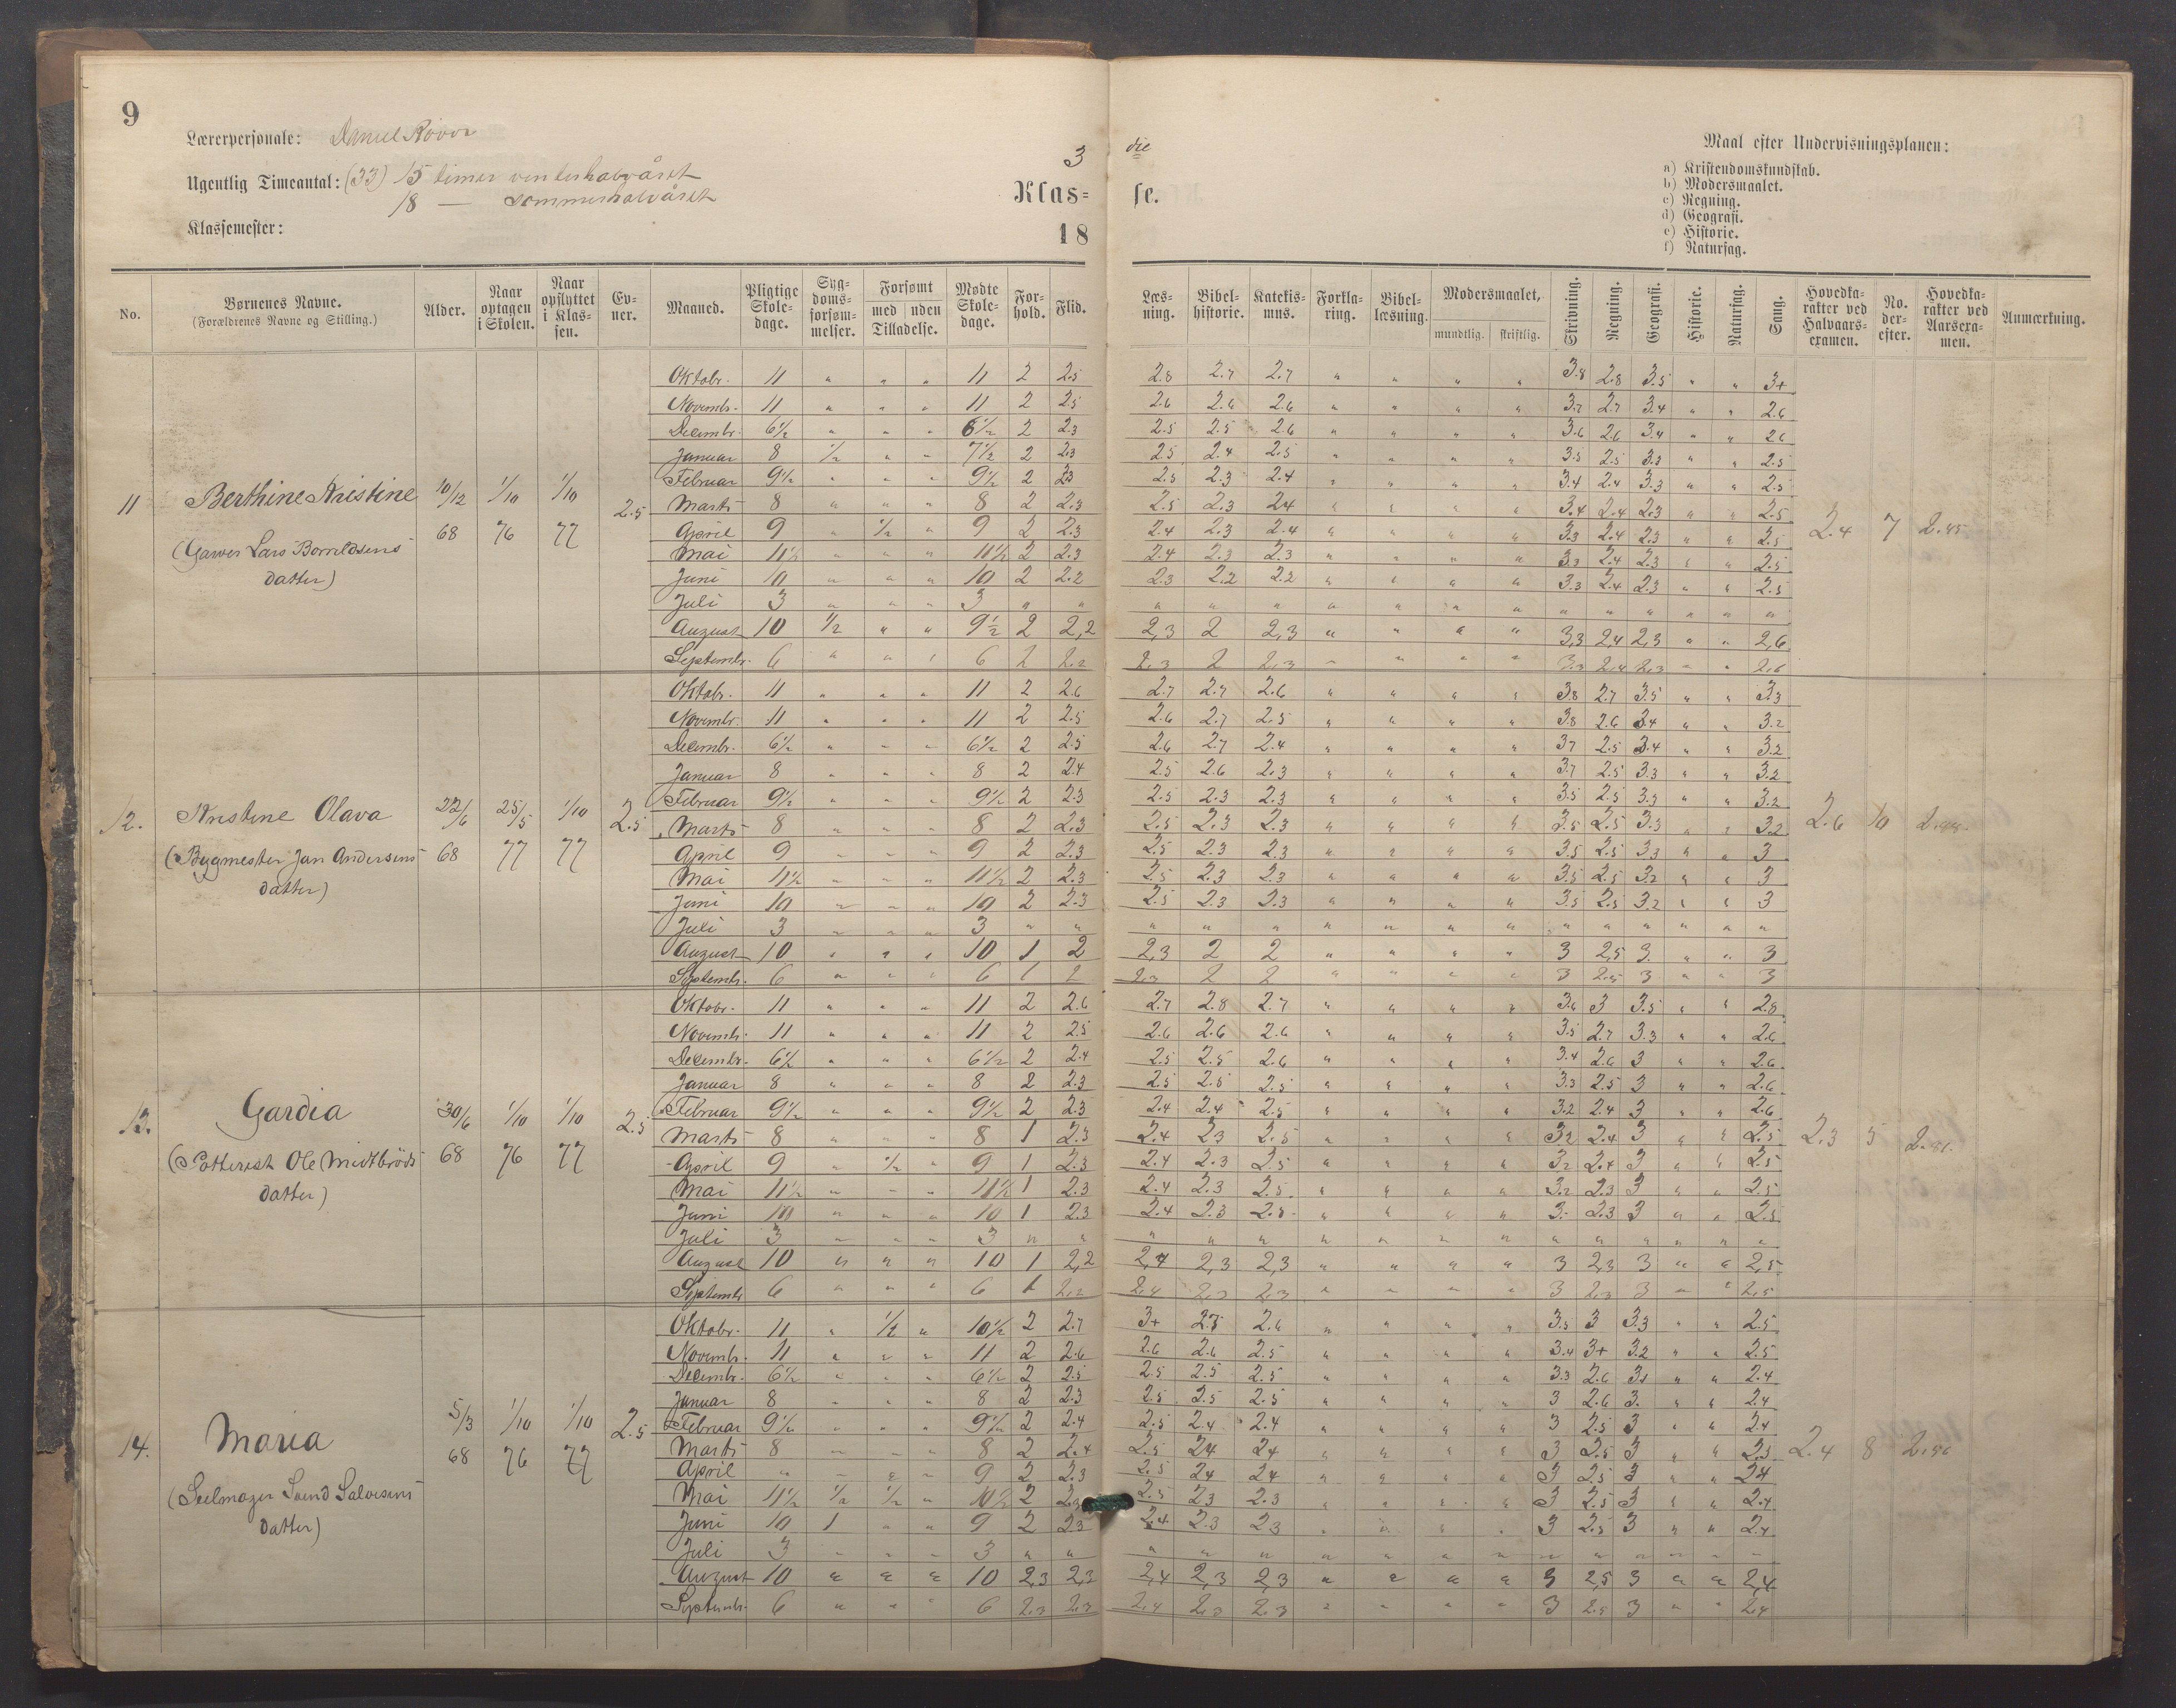 9
Lærerpersonale:
Ugentlig Timeantal: (33) 15 timer vinterhalvåret
18 — sommerhalvåret
Klassemester:
3 die
Klas= se.
18
Maal efter Undervisningsplanen:
a) Kristendomskundskab.
b) Modersmaalet.
c) Regning.
d) Geografi.
e) Historie.
f) Naturfag.
No. Børnenes Navne. (Forældrenes Navne og Stilling.) Alder. Naar optagen i Skolen. Naar opflyttet i Klassen. Evner. Maaned. Pligtige Skoledage. Sygdomsforsømmelser. Forsømt med uden Tilladelse. Mødte Skoledage. Forhold. Flid. Læsning. Bibelhistorie. Katekismus. Forklaring. Bibellæsning. Modersmaalet, mundtlig. skriftlig. Skrivning. Regning. Geografi. Historie. Naturfag. Sang. Hovedkarakter ved Halvaarsexamen. No. derefter. Hovedkarakter ved Aarsexamen. Anmærkning.
11 Berthine Kristine 10/12 68 1/10 76 1/10 77 2.5
datter)
Oktobr. 11 " " " 11 2 2.5 2.8 2.7 2.7 " " " " 3.8 2.8 3.5 " " 3+
Novembr. 11 " " " 11 2 2.5 2.6 2.6 2.6 " " " " 3.7 2.7 3.4 " " 2.6
Decembr. 6½ " " " 6½ 2 2.3 2.5 2.5 2.6 " " " " 3.6 2.6 3.4 " " 2.6
Januar 8 ½ " " 7½ 2 2.3 2.5 2.4 2.5 " " " " 3.5 2.5 3.3 " " 2.5
Februar 9½ " " " 9½ 2 2.3 2.5 2.3 2.4 " " " " 3.4 2.4 3.3 " " 2.5
Marts 8 " " " 8 2 2.3 2.5 2.3 2.4 " " " " 3.4 2.4 2.3 " " 2.5
April 9 " ½ " 9 2 2.3 2.4 2.3 2.4 " " " " 3.3 2.4 2.3 " " 2.5
Mai 11½ " " " 11½ 2 2.3 2.4 2.3 2.3 " " " " 3.3 2.4 2.3 " " 2.5
Juni 10 " " " 10 2 2.2 2.3 2.2 2.2 " " " " 3.3 2.4 2.3 " " 2.5
Juli 3 " " " 3 " " " " " " " " " " " " " " "
August 10 ½ " " 9½ 2 2,2 2,3 2 2,3 " " " " 3,3 2,4 2,3 " " 2,6
Septembr. 6 " " " 6 2 2.2 2.3 2 2.3 " " " " 3.3 2.4 2.3 " " 2.6
2.4 7 2.45
12. Kristine Olava 22/6 68 25/5 77 1/10 77 2.5
(Bygmester Jan Andersens
datter)
Oktobr. 11 " " " 11 2 2.6 2.7 2.7 2.6 " " " " 3.8 2.7 3.5 " " 3.3
Novembr. 11 " " " 11 2 2.5 2.6 2.7 2.5 " " " " 3.8 2.6 3.4 " " 3.2
Decembr. 6½ " " " 6½ 2 2.5 2.6 2.7 2.4 " " " " 3.7 2.5 3.4 " " 3.2
Januar 8 " " " 8 2 2.4 2.5 2.6 2.3 " " " " 3.7 2.5 3.3 " " 3.2
Februar 9½ " " " 9½ 2 2.3 2.5 2.3 2.3 " " " " 3.5 2.5 3.3 " " 3.2
Marts 8 " " " 8 2 2.3 2.5 2.3 2.3 " " " " 3.5 2.5 3.3 " " 3.2
April 9 " " " 9 2 2.3 2.5 2.3 2.3 " " " " 3.5 2.5 3.3 " " 3
Mai 11½ " " " 11½ 2 2.3 2.5 2.3 2.3 " " " " 3.5 2.5 3.2 " " 3
Juni 10 " " " 10 2 2.3 2.5 2.3 2.3 " " " " 3.5 2.5 3.2 " " 3
Juli 3 " " " 3 " " " " " " " " " " " " " " "
August 10 " " " 10 1 2 2,3 2 2 " " " " 3 2,5 3. " " 3
Septembr. 6 " " " 6 1 2 2.3 2 2 " " " " 3 2.5 3 " " 3
2.6 10
13. Gardia 30/6 68 1/10 76 1/10 77 2.5
datter)
Oktobr. 11 " " " 11 2 2.6 2.7 2.8 2.7 " " " " 3.6 3 3.5 " " 2.8
Novembr. 11 " " " 11 2 2.5 2.6 2.6 2.6 " " " " 3.5 2.7 3.3 " " 2.6
Decembr. 6½ " " " 6½ 2 2.4 2.5 2.5 2.6 " " " " 3.4 2.6 3 " " 2.6
Januar 8 " " " 8 2 2.3 2.5 2.5 2.5 " " " " 3.3 2.5 3 " " 2.6
Februar 9½ " " " 9½ 2 2.3 2.4 2.4 2.5 " " " " 3.2 2.4 3 " " 2.6
Marts 8 " " " 8 1 2.3 2.4 2.3 2.5 " " " " 3.2 2.4 3 " " 2.5
April 9 " ½ " 9 1 2.3 2.4 2.3 2.5 " " " " 3.2 2.4 3 " " 2.5
Mai 11½ " " " 11½ 1 2.3 2.4 2.3 2.5 " " " " 3.2 2.3 3 " " 2.5
Juni 10 " " " 10 1 2.3 2.4 2.3 2.5 " " " " 3.- 2.3 3 " " 2.5
Juli 3 " " " 3 " " " " " " " " " " " " " " "
August 10 " " " 10 1 2,2 2,4 2,3 2,3 " " " " 3 2,3 3 " " 2,5
Septembr 6 " " " 6 1 2.2 2.4 2.3 2.3 " " " " 3 2.3 3 " " 2.5
2.3 5
14. Maria 5/3 68 1/10 76 1/10 77 2.5
datter)
Oktobr. 11 " ½ " 10½ 2 2.7 3+ 2.5 2.6 " " " " 3.5 3 3.3 " " 2.5
Novembr. 11 " " " 11 2 2.6 2.6 2.6 2.5 " " " " 3.4 3+ 3.2 " " 2.5
Decembr. 6½ " " " 6½ 2 2.5 2.5 2.5 2.5 " " " " 3.3 2.6 " " 2.4
Januar 8 " " " 8 2 2.3 2.5 2.5 2.5 " " " " 3 2.6 3. " " 2.4
Februar 9½ " " " 9½ 2 2.4 2.5 2.4 2.4 " " " " 3 2.5 3 " " 2.4
Marts 8 " " " 8 2 2.4 2.5 2.4 2.4 " " " " 3 2.5 3 " " 2.3
April " " " " 9 2 2.3 2.5 2.4 2.4 " " " " 3 2.5 3 " " 2.4
Mai 11½ ½ ½ " 10½ 2 2.3 2.5 2.3 2.3 " " " " 3 2.5 3 " " 2.4
Juni 10 1 " " 9 2 2.3 2.4 2.3 2.3 " " " " 3 2.5 3 " " 2.4
Juli 3 " " " 3 " " " " " " " " " " " " " " "
August 10 " " " 10 2,3 2,3 2,4 2,3 2,3 " " " " 3 2,5 3 " " 2,4
Septembr. 6 " " " 6 2.3 2.3 2.4 2.3 2.3 " " " " 3 2.5 3 " " 2.4
2.4 8